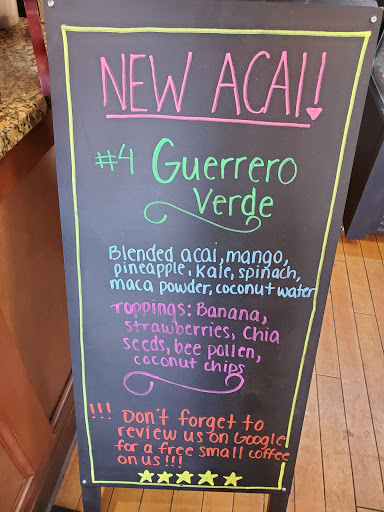 NEW ACAI!
#4 Guerrero
Verde
Blended acai, mango,
pineapple, kale, spinach,
maca powder, coconut water
Toppings: Banana,
strawberries, chia
seeds, bee pollen,
coconut chips
!!! Don't forget to
review us on Google
for a free small coffee
on us!!!